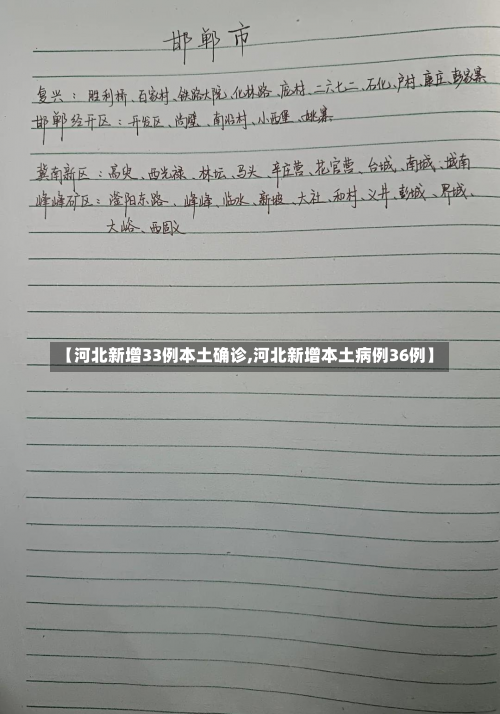 邯郸市
复兴：胜利桥、石家村、铁路大院、化林路、庞村、二六七二、石化、户村、康庄、彭家寨
邯郸经开区：开发区、尚璧、南沿村、小西堡、姚寨
冀南新区：高臾、西光禄、林坛、马头、辛庄营、花官营、台城、南城、城南
峰峰矿区：滏阳东路、峰峰、临水、新坡、大社、和村、义井、彭城、界城、
大峪、西固义
【河北新增33例本土确诊,河北新增本土病例36例】